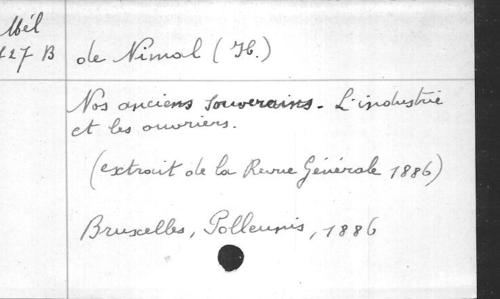 Mél
127 B
de Nimal (H.)
Nos anciens souverains - L'industrie
et les ouvriers.
(extrait de la Revue Générale 1886)
Bruxelles, Polleunis, 1886